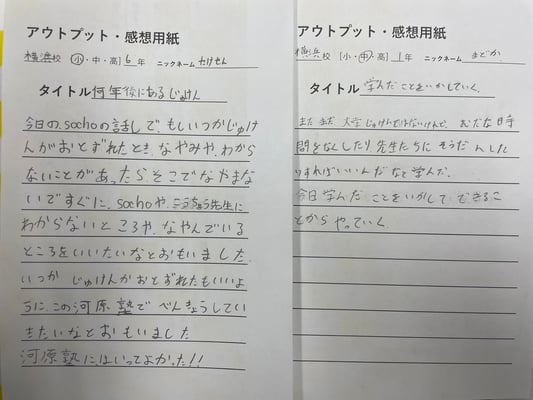 アウトプット・感想用紙
横浜校 [小・中・高] 6年 ニックネーム たけせん
タイトル 何年後にあるじゅけん
今日の、sochoの話しで、もしいつかじゅけ
んがおとずれたとき、なやみや、わから
ないことがあったらそこでなやまな
いですぐに、sochoや、こうちょう先生に
わからないところや、なやんでいる
ところをいいたいなとおもいました。
いつか じゅけんがおとずれたもいいよ
うに、この河原塾でべんきょうしてい
きたいなとおもいました
河原塾にはいってよかった!!
アウトプット・感想用紙
横浜校 [小・中・高] 1年 ニックネーム まどか
タイトル 学んだことをいかしていく。
まだまだ大学じゅけんではないけんど、むだな時
間をなくしたり先生たちにそうだんした
りすればいいんだなって学んだ。
今日学んだことをいかしてできるこ
とからやっていく